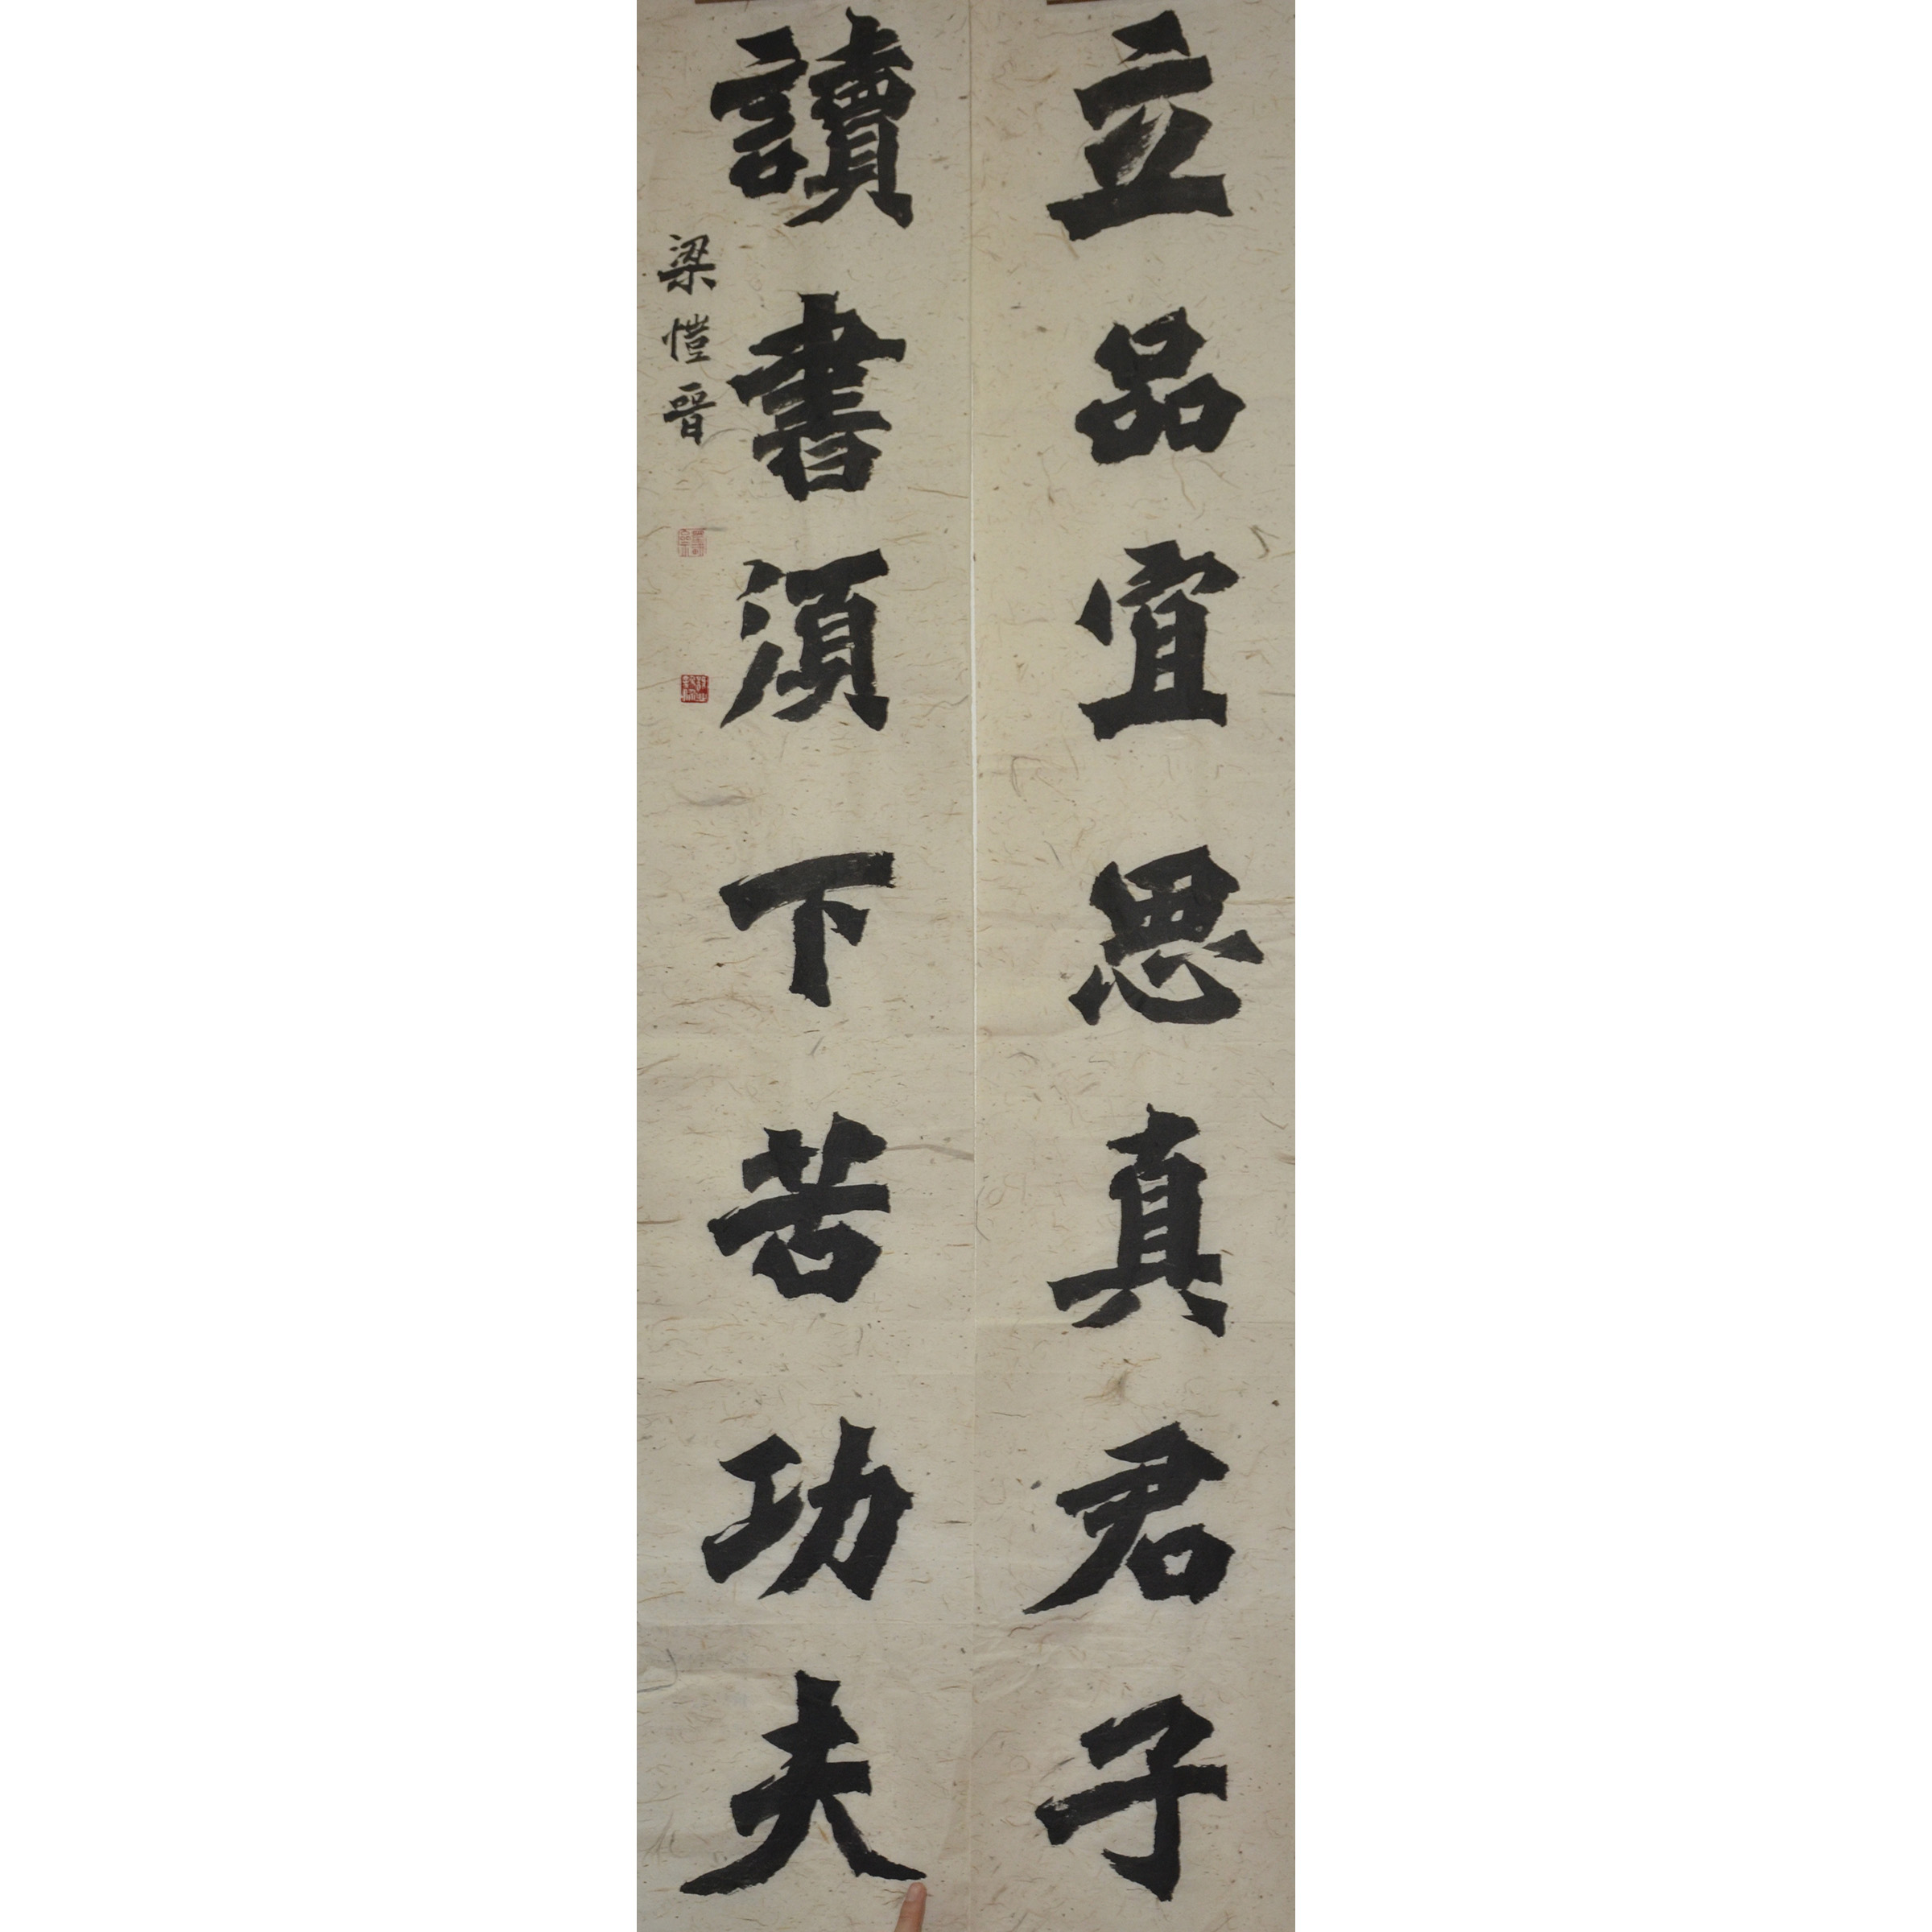 立品宜思真君子
讀書須下苦功夫
梁愷晉